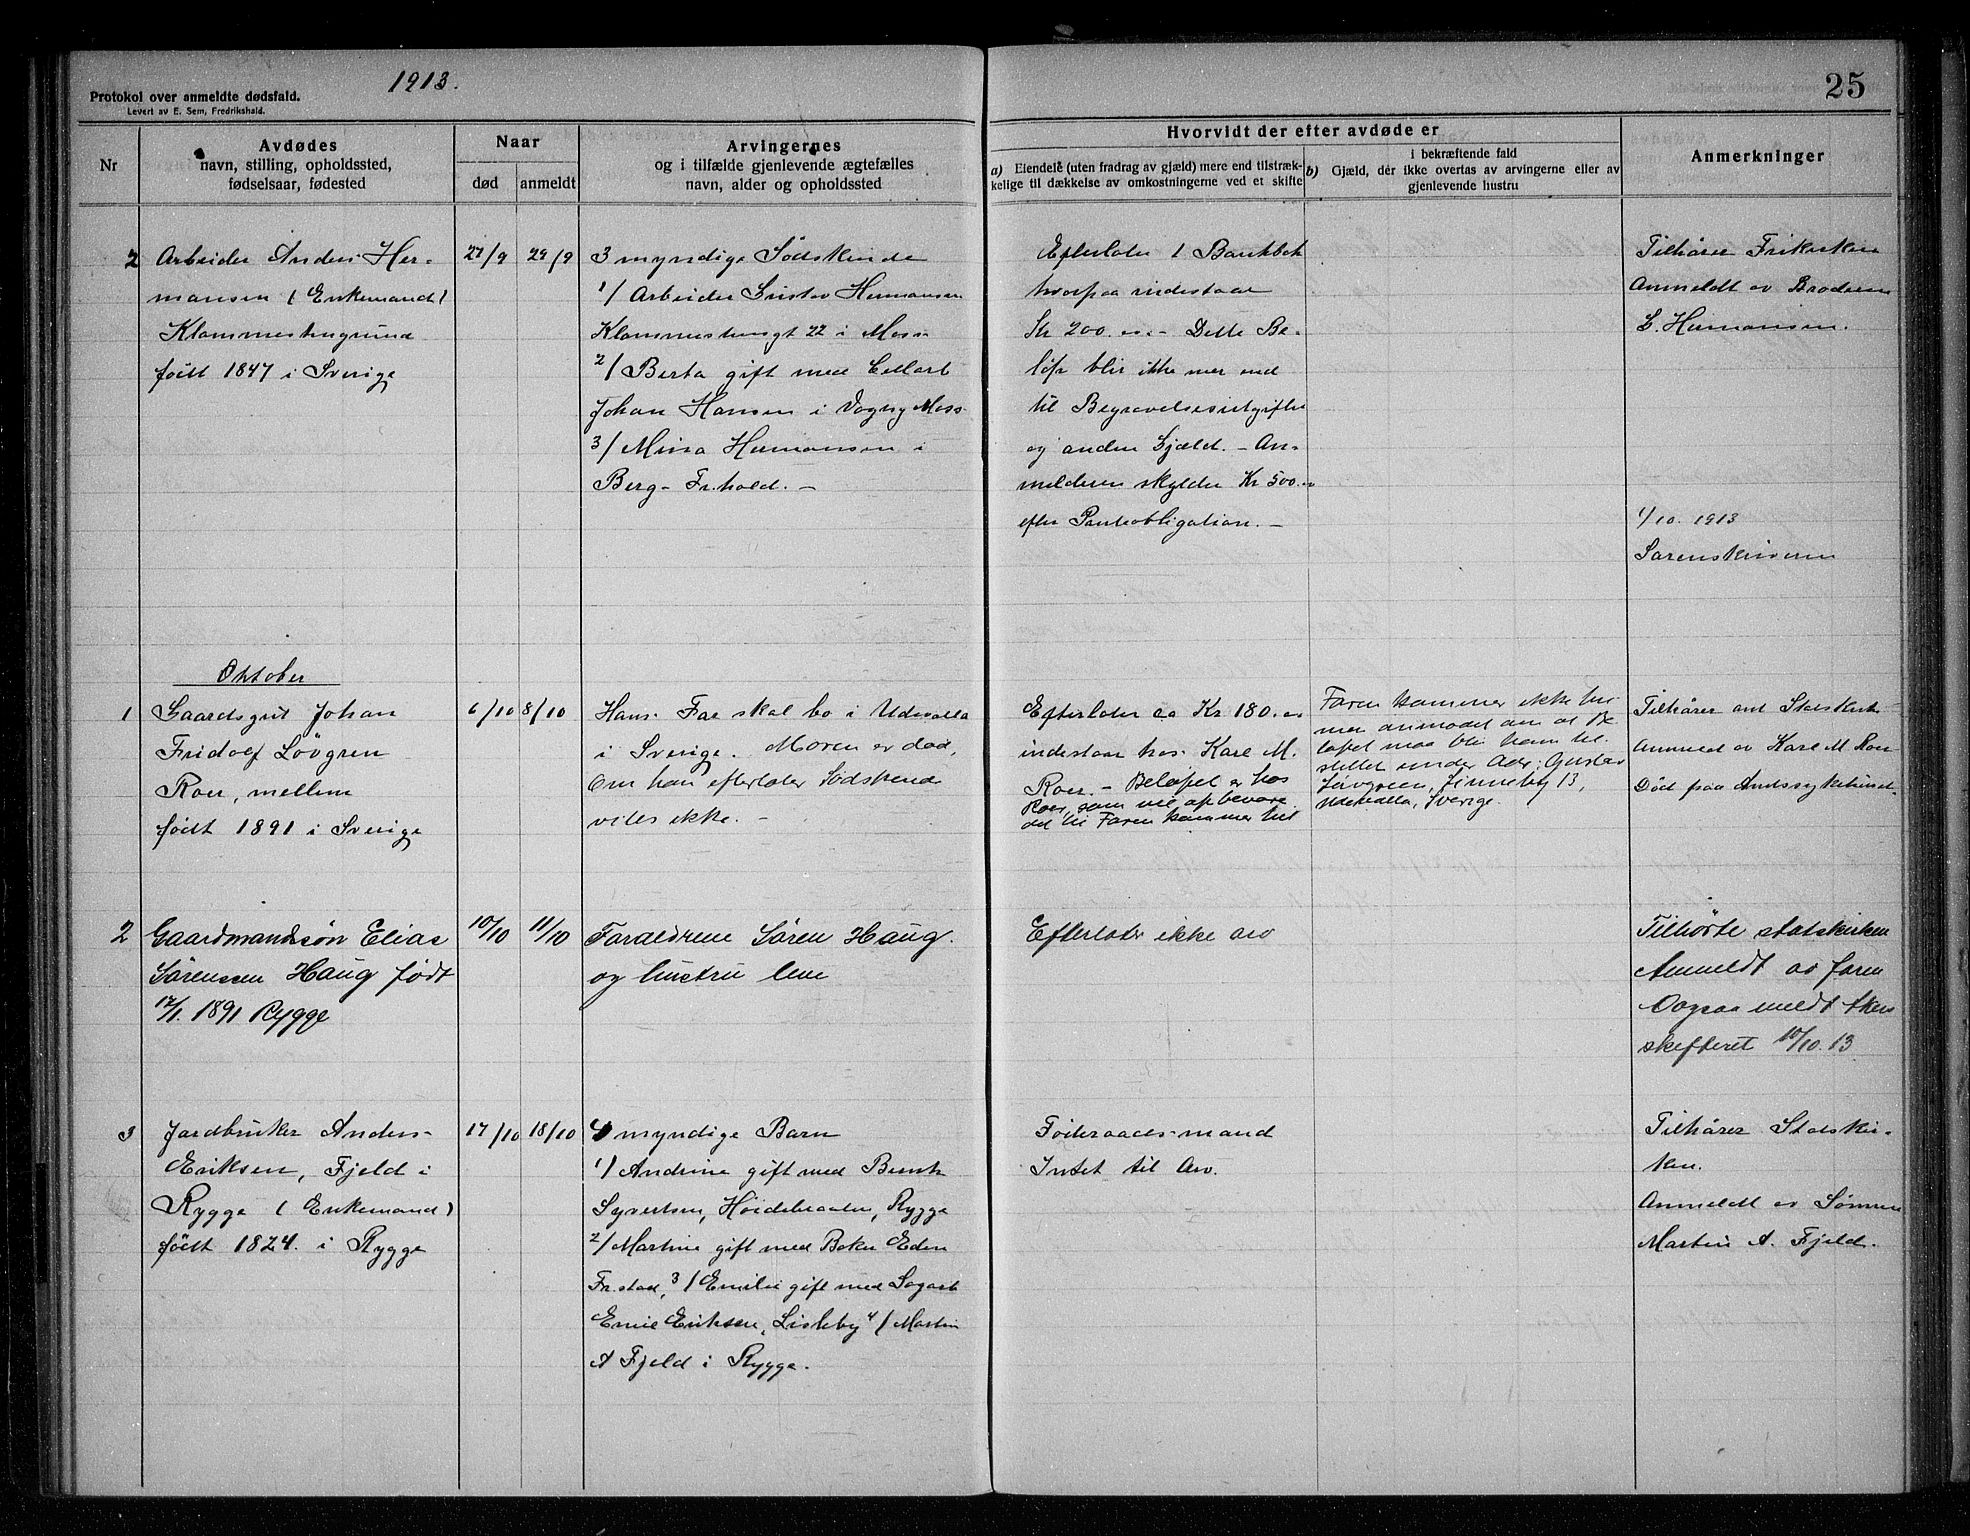 1913.
25
Protokol over anmeldte dødsfald.
Levert av E. Sem, Fredrikshald.
Nr
Avdødes
navn, stilling, opholdssted,
fødselsaar, fødested
Naar
død
anmeldt
Arvingernes
og i tilfælde gjenlevende ægtefælles
navn, alder og opholdssted
Hvorvidt der efter avdøde er
a) Eiendele (uten fradrag av gjæld) mere end tilstræk-
kelige til dækkelse av omkostningerne ved et skifte
i bekræftende fald
b) Gjæld, der ikke overtas av arvingerne eller av
gjenlevende hustru
Anmerkninger
2
Arbeider Anders Her-
mansen (Enkemand)
født 1847 i Sverige
27/9
29/9
3 myndige Södskende
1/ Arbeider Gustav Hermansen
22 i Moss
2/ Berta gift med
Johan Hansen i Moss
3/ Mina Hermansen i
Berg - Fr.hald. -
Efterlater 1 Bankbok
hvorpaa indestaar
Kr 200.00. - Dette Be-
löp blir ikke mer end
til Begravelsesutgifter
og anden Gjæld. - An-
melderen skylder Kr 500.00
efter Panteobligation. -
Tilhører Frikirken
Anmeldt av Broderen
G. Hermansen.
1/10. 1913
Sorenskriveren
Oktober
1
Gaardsgut Johan
Fridolf Lövgren
Roer, mellem
født 1891 i Sverige
6/10
8/10
Hans Far skal bo i Udevalla
i Sverige. Moren er död,
Om han efterlater Södskend
vites ikke. -
Efterlater ca Kr 180.00
indestaar hos Karl M.
Roer. - Beløpet er hos
Roer, som vil opbevare
det til Faren kommer hit
Faren kommer ikke hit
men anmodet om at Be
løpet maa bli ham til-
stillet under Adr: Gustav
Lövgreen, 13,
Udevalla, Sverige.
Tilhører Statskirk
Anmeld av Karl M Roer
Död paa Amtssykehuset
2
Gaardmandssøn Elias
Sørenssen Haug født
17/1. 1891 Rygge
10/10
11/10
Foraeldrene Søren Haug
og hustru leve
Efterlater ikke arv
Tilhørte statskirken
Anmeldt av faren
Ogsaa meldt
10/10. 13
3
Jordbruker Anders
Eriksen, Fjeld i
Rygge (Enkemand)
født 1824. i Rygge
17/10
18/10
4 myndige Barn
1/ Andrine gift med Bernh
Syvertsen, Høidebraaten, Rygge
2/ Martine gift med Baker Eden
Fr.stad, 3/ Emilie gift med Sagarb
Emil Eriksen, Lisleby 4/ Martin
A Fjeld i Rygge.
Føderaadsmand
Intet til Arv.
Tilhører Statskir-
ken.
Anmeldt av Sønnen
Martin A. Fjeld.